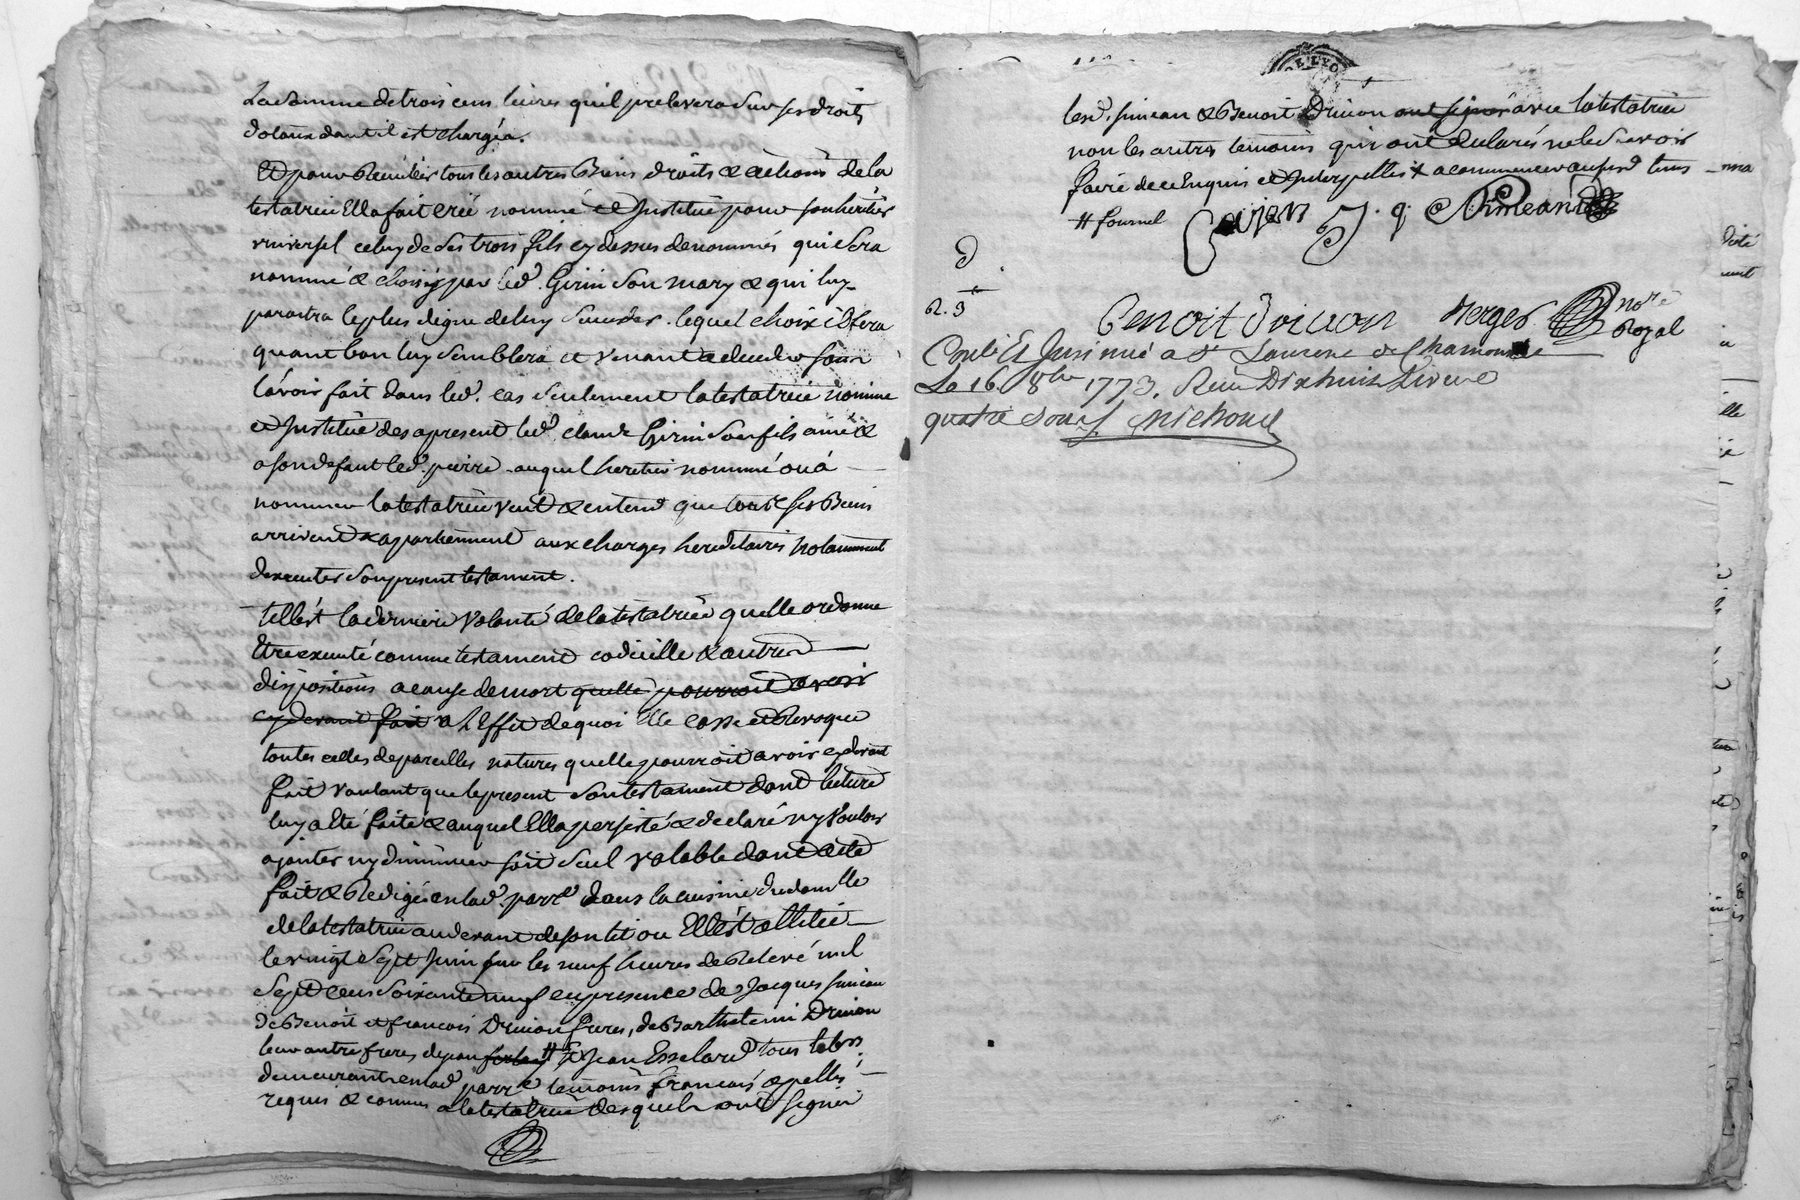 La somme de trois cens livres quil prelevera sur ses droits
dotaux dont il est chargée.
Et pour Receüillir tous les autres Biens droits & actions de la
testatrice Ella fait créé nommé et Institué pour son heritier
vniversel celuy de ses trois fils cy dessus denommés qui sera
nommé & choisy par led. Girin son mary & qui luy
paroitra le plus digne de luy succeder. lequel choix il fera
quant bon luy semblera et venant a deceder sans
lavoir fait dans led. cas seulement la testatrice nomme
et Institüe des apresent led. claude Girin son fils ainé &
a son defaut led. pierre auquel heretier nommé ou á
nommer la testatrice veut & entend que tout ses Biens
arrivent & apartiennent aux charges hereditaires notamment
dexecuter son present testament.
telle est la derniere volonté de la testatrice quelle ordonne
Etre executé comme testament codicille & autres
dispositions a cause de mort quelle pourroit avoir
cy devant fait a lEffet de quoi Elle casse et Revoque
toutes celles de pareilles natures quelle pourroit avoir cy devant
fait voulant que le present son testament dont lecture
luy a Eté faite & auquel Ella persisté & declaré ny vouloir
ajouter ny diminuer soit seul valable dont acte
fait & Redigé en lad. parr.e dans la cuisine du domlle
de la testatrice au devant de son lit ou Elle est allitée
le vingt sept Juin sur les neuf heures de Relevé mil
sept cens soixante neuf en presence de Jacques simean
de Benoit et francois Drivon freres, de Barthelemi Drivon
leur autre frere de jean # & Jean Esselard tous labrs
demeurants en lad. parr.e temoins francois apellés
requis & connus a la testatrice desquels ont signé
lesd. simean & Benoit Drivon ont signé avec la testatrice
non les autres temoins qui ont declarés ne le savoir
faire de ce Enquis et Interpellés
# fournel
J. q. Simean
Benoit Drivon Verger nore
Royal
Conllé Et Insinué a St Laurent de Chamousset
Le 16. 8bre 1773. Reçu Dix huit Livres
quatre sous Michoud